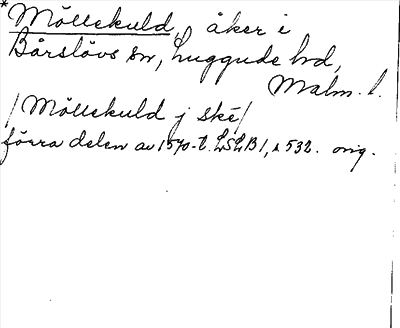 *Möllekuld, åker i
Bårslövs sn, Luggude hd,
Malm. l.
/Möllekuld j ske/
förra delen av 1570-t. LSLB 1, s 532. orig.